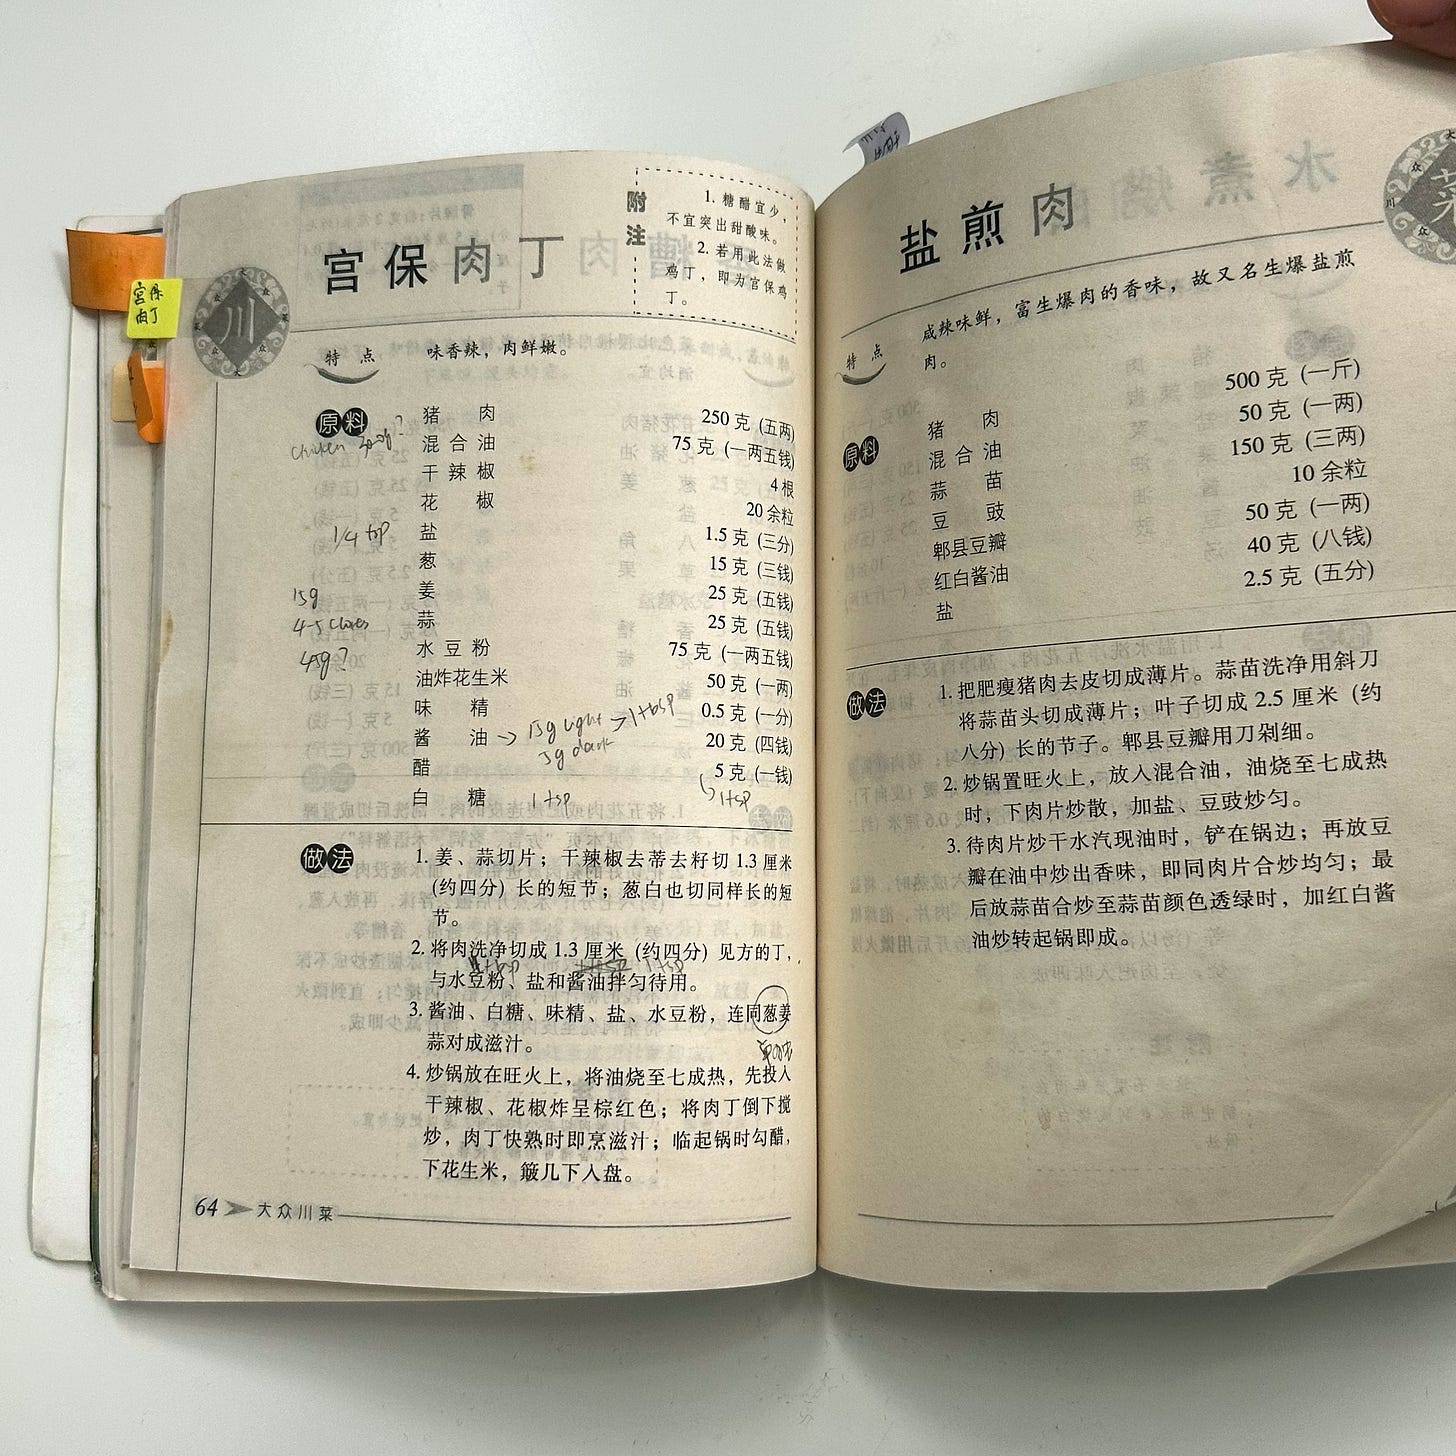 宫保
肉丁
川
大众川菜
宫保肉丁
附注
1. 糖醋宜少，
不宜突出甜酸味。
2. 若用此法做
鸡丁，即为宫保鸡
丁。
特点 味香辣，肉鲜嫩。
原料
猪肉 250 克 (五两)
chicken
混合油 75 克 (一两五钱)
干辣椒 4 根
花椒 20 余粒
1/4 tsp 盐 1.5 克 (三分)
葱 15 克 (三钱)
15g 姜 25 克 (五钱)
4-5 cloves 蒜 25 克 (五钱)
45g? 水豆粉 75 克 (一两五钱)
油炸花生米 50 克 (一两)
味精 0.5 克 (一分)
酱油 → 15g light → 1 tbsp 20 克 (四钱)
5g dark
醋 5 克 (一钱)
↳ 1 tsp
白糖 1 tsp
做法
1. 姜、蒜切片；干辣椒去蒂去籽切 1.3 厘米
(约四分) 长的短节；葱白也切同样长的短
节。
2. 将肉洗净切成 1.3 厘米 (约四分) 见方的丁，
1 tsp
与水豆粉、盐和酱油拌匀待用。
3. 酱油、白糖、味精、盐、水豆粉，连同葱姜
蒜对成滋汁。
4. 炒锅放在旺火上，将油烧至七成热，先投入
干辣椒、花椒炸呈棕红色；将肉丁倒下搅
炒，肉丁快熟时即烹滋汁；临起锅时勾醋，
下花生米，簸几下入盘。
64 大众川菜
盐煎肉
菜
特点 咸辣味鲜，富生爆肉的香味，故又名生爆盐煎
肉。
原料
猪肉 500 克 (一斤)
混合油 50 克 (一两)
蒜苗 150 克 (三两)
豆豉 10 余粒
郫县豆瓣 50 克 (一两)
红白酱油 40 克 (八钱)
盐 2.5 克 (五分)
做法
1. 把肥瘦猪肉去皮切成薄片。蒜苗洗净用斜刀
将蒜苗头切成薄片；叶子切成 2.5 厘米 (约
八分) 长的节子。郫县豆瓣用刀剁细。
2. 炒锅置旺火上，放入混合油，油烧至七成热
时，下肉片炒散，加盐、豆豉炒匀。
3. 待肉片炒干水汽现油时，铲在锅边；再放豆
瓣在油中炒出香味，即同肉片合炒均匀；最
后放蒜苗合炒至蒜苗颜色透绿时，加红白酱
油炒转起锅即成。